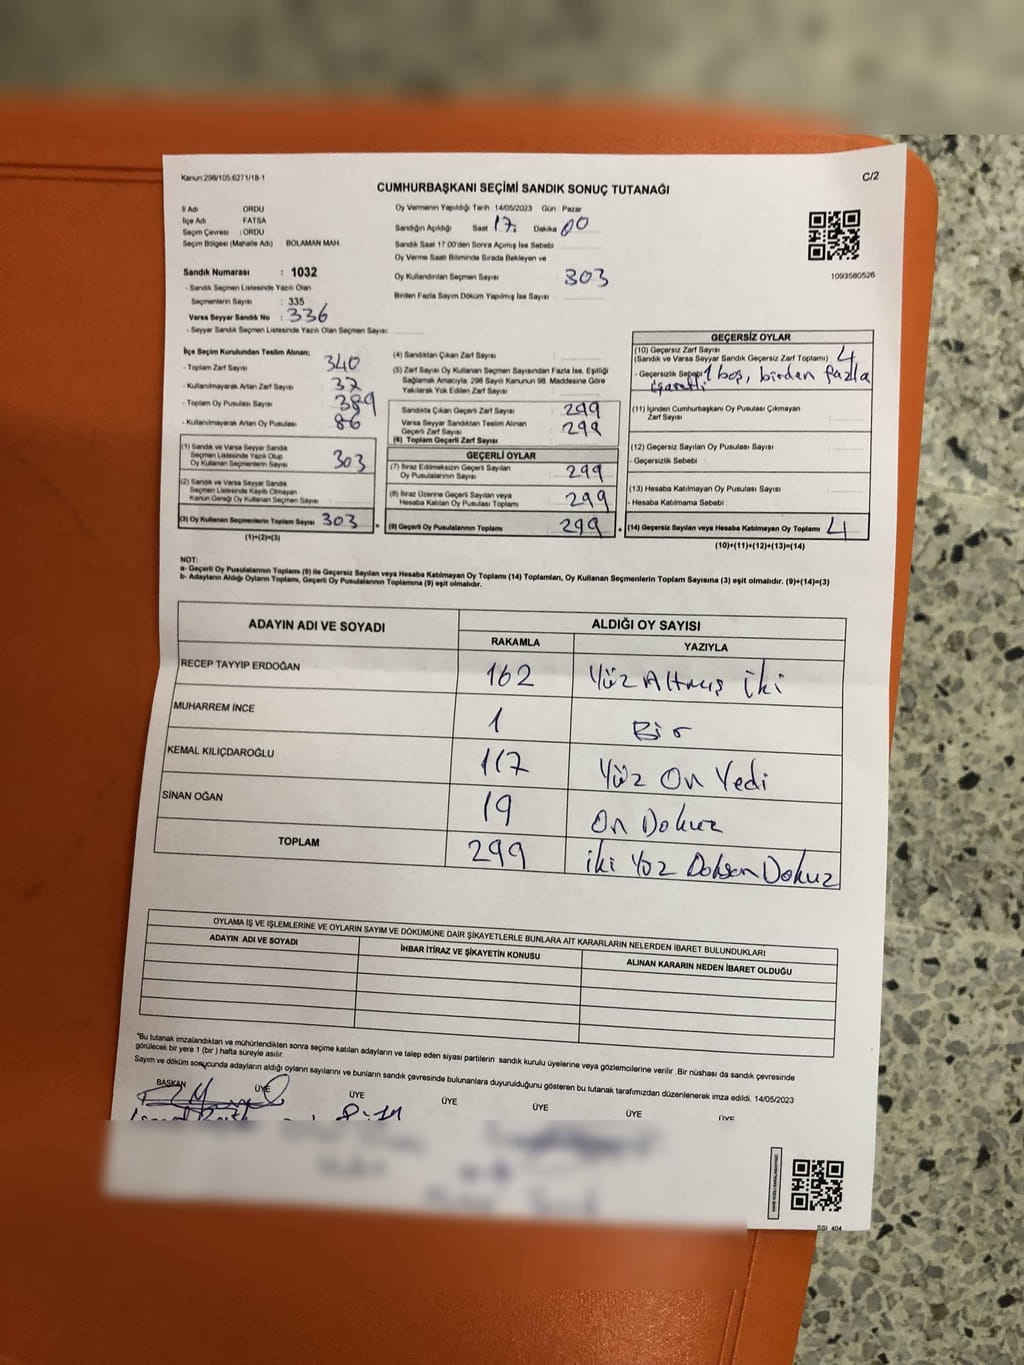 Kanun:298/105;6271/18-1
C/2
CUMHURBAŞKANI SEÇİMİ SANDIK SONUÇ TUTANAĞI
İl Adı ORDU
İlçe Adı FATSA
Seçim Çevresi : ORDU
Seçim Bölgesi (Mahalle Adı) BOLAMAN MAH.
Sandık Numarası : 1032
- Sandık Seçmen Listesinde Yazılı Olan
Seçmenlerin Sayısı : 335
Varsa Seyyar Sandık No : 336
- Seyyar Sandık Seçmen Listesinde Yazılı Olan Seçmen Sayısı:
Oy Vermenin Yapıldığı Tarih 14/05/2023 Gün Pazar
Sandığın Açıldığı Saat 17. Dakika 00
Sandık Saat 17.00'den Sonra Açılmış İse Sebebi
Oy Verme Saati Bitiminde Sırada Bekleyen ve
Oy Kullandırılan Seçmen Sayısı 303
Birden Fazla Sayım Döküm Yapılmış İse Sayısı
1093580526
İlçe Seçim Kurulundan Teslim Alınan;
- Toplam Zarf Sayısı 340
- Kullanılmayarak Artan Zarf Sayısı 37
- Toplam Oy Pusulası Sayısı 389
- Kullanılmayarak Artan Oy Pusulası 86
(1) Sandık ve Varsa Seyyar Sandık
Seçmen Listesinde Yazılı Olup
Oy Kullanan Seçmenlerin Sayısı 303
(2) Sandık ve Varsa Seyyar Sandık
Seçmen Listesinde Kayıtlı Olmayan
Kanun Gereği Oy Kullanan Seçmen Sayısı
(3) Oy Kullanan Seçmenlerin Toplam Sayısı 303
(1)+(2)=(3)
(4) Sandıktan Çıkan Zarf Sayısı
(5) Zarf Sayısı Oy Kullanan Seçmen Sayısından Fazla İse, Eşitliği
Sağlamak Amacıyla, 298 Sayılı Kanunun 98. Maddesine Göre
Yakılarak Yok Edilen Zarf Sayısı
Sandıkta Çıkan Geçerli Zarf Sayısı 299
Varsa Seyyar Sandıktan Teslim Alınan
Geçerli Zarf Sayısı 299
(6) Toplam Geçerli Zarf Sayısı
GEÇERLİ OYLAR
(7) İtiraz Edilmeksizin Geçerli Sayılan
Oy Pusulalarının Sayısı 299
(8) İtiraz Üzerine Geçerli Sayılan veya
Hesaba Katılan Oy Pusulası Toplamı 299
(9) Geçerli Oy Pusulalarının Toplamı 299
GEÇERSİZ OYLAR
(10) Geçersiz Zarf Sayısı
(Sandık ve Varsa Seyyar Sandık Geçersiz Zarf Toplamı) 4
- Geçersizlik Sebebi 1 boş, birden fazla
işaretli
(11) İçinden Cumhurbaşkanı Oy Pusulası Çıkmayan
Zarf Sayısı
(12) Geçersiz Sayılan Oy Pusulası Sayısı
- Geçersizlik Sebebi
(13) Hesaba Katılmayan Oy Pusulası Sayısı
- Hesaba Katılmama Sebebi
(14) Geçersiz Sayılan veya Hesaba Katılmayan Oy Toplamı 4
(10)+(11)+(12)+(13)=(14)
NOT:
a- Geçerli Oy Pusulalarının Toplamı (9) ile Geçersiz Sayılan veya Hesaba Katılmayan Oy Toplamı (14) Toplamları, Oy Kullanan Seçmenlerin Toplam Sayısına (3) eşit olmalıdır. (9)+(14)=(3)
b- Adayların Aldığı Oyların Toplamı, Geçerli Oy Pusulalarının Toplamına (9) eşit olmalıdır.
ADAYIN ADI VE SOYADI ALDIĞI OY SAYISI
RAKAMLA YAZIYLA
RECEP TAYYİP ERDOĞAN 162 Yüz Altmış İki
MUHARREM İNCE 1 Bir
KEMAL KILIÇDAROĞLU 117 Yüz On Yedi
SİNAN OĞAN 19 On Dokuz
TOPLAM 299 iki Yüz Doksan Dokuz
OYLAMA İŞ VE İŞLEMLERİNE VE OYLARIN SAYIM VE DÖKÜMÜNE DAİR ŞİKAYETLERLE BUNLARA AİT KARARLARIN NELERDEN İBARET BULUNDUKLARI
ADAYIN ADI VE SOYADI İHBAR İTİRAZ VE ŞİKAYETİN KONUSU ALINAN KARARIN NEDEN İBARET OLDUĞU
*Bu tutanak imzalandıktan ve mühürlendikten sonra seçime katılan adayların ve talep eden siyasi partilerin sandık kurulu üyelerine veya gözlemcilerine verilir. Bir nüshası da sandık çevresinde
görülecek bir yere 1 (bir ) hafta süreyle asılır.
Sayım ve döküm sonucunda adayların aldığı oyların sayılarını ve bunların sandık çevresinde bulunanlara duyurulduğunu gösteren bu tutanak tarafımızdan düzenlenerek imza edildi. 14/05/2023
BAŞKAN ÜYE ÜYE ÜYE ÜYE ÜYE ÜYE